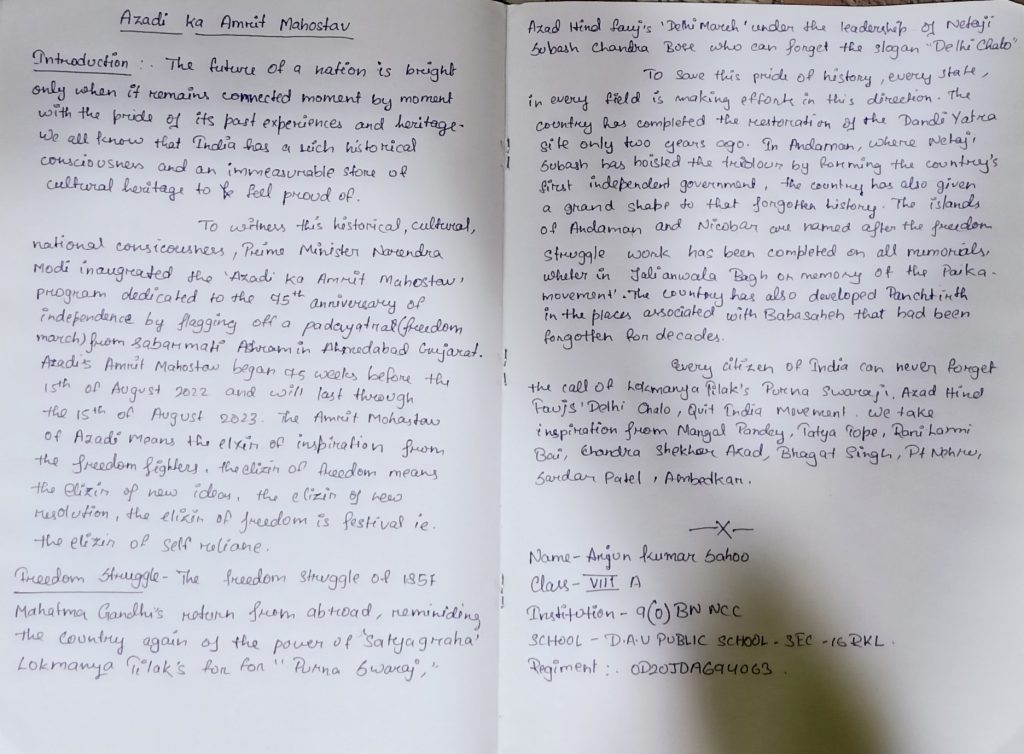 Azadi ka Amrit Mahostav
Introduction :. The future of a nation is bright
only when it remains connected moment by moment
with the pride of its past experiences and heritage.
We all know that India has a rich historical
consciousness and an immeasurable store of
cultural heritage to feel proud of.
To witness this historical, cultural,
national consicousness, Prime Minister Narendra
Modi inaugrated the 'Azadi ka Amrit Mahostav'
program dedicated to the 75th anniversary of
independence by flagging off a padayatra (freedom
march) from Sabarmati Ashram in Ahmedabad Gujarat.
Azadi's Amrit Mahostav began 75 weeks before the
15th of August 2022 and will last through
the 15th of August 2023. The Amrit Mohastav
of Azadi means the elxir of inspiration from
the freedom fighters. the elixir of freedom means
the elixir of new ideas, the elixir of new
resolution, the elixir of freedom is festival ie.
the elixir of self reliane.
Freedom Struggle - The freedom struggle of 1857
Mahatma Gandhi's return from abroad, reminiding
the country again of the power of 'Satyagraha'
Lokmanya Tilak's for for "Purna Swaraj,"
Azad Hind fauj's 'Delhi March' under the leadership of Netaji
Subash Chandra Bose who can forget the slogan "Delhi Chalo"
To save this pride of history, every state,
in every field is making efforts in this direction. The
country has completed the restoration of the Dandi Yatra
site only two years ago. In Andaman, where Netaji
Subash has hoisted the tricolour by forming the country's
first independent government, the country has also given
a grand shape to that forgotten history. The islands
of Andaman and Nicobar are named after the freedom
struggle work has been completed on all memorials,
wheter in Jalianwala Bagh or memory of the Paika-
movement'. The country has also developed Panchtirth
in the places associated with Babasaheb that had been
forgotten for decades.
Every citizen of India can never forget
the call of Lokmanya Tilak's Purna Swaraj, Azad Hind
Fauj's 'Delhi Chalo, Quit India Movement. We take
inspiration from Mangal Pandey, Tatya Tope, Rani Laxmi
Bai, Chandra Shekhar Azad, Bhagat Singh, Pt Nehru,
Sardar Patel, Ambedkar.
X
Name - Arjun Kumar Sahoo
Class - VIII A
Institution - 9(O) BN NCC
SCHOOL - D.A.V PUBLIC SCHOOL - SEC -16 RKL.
Regiment :. OD20JDA694063.